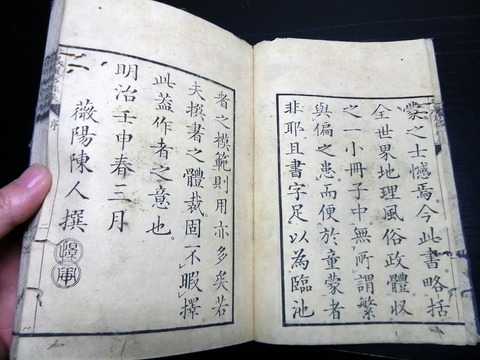 蒙之士憾焉今此書略括
全世界地理風俗政體収
之一小冊子中無所謂繁
與偏之患而便於童蒙者
非耶且書字足以為臨池
者之模範則用亦多矣若
夫撰書之體裁固不暇擇
此蓋作者之意也
明治壬申春三月
薇陽陳人撰
序